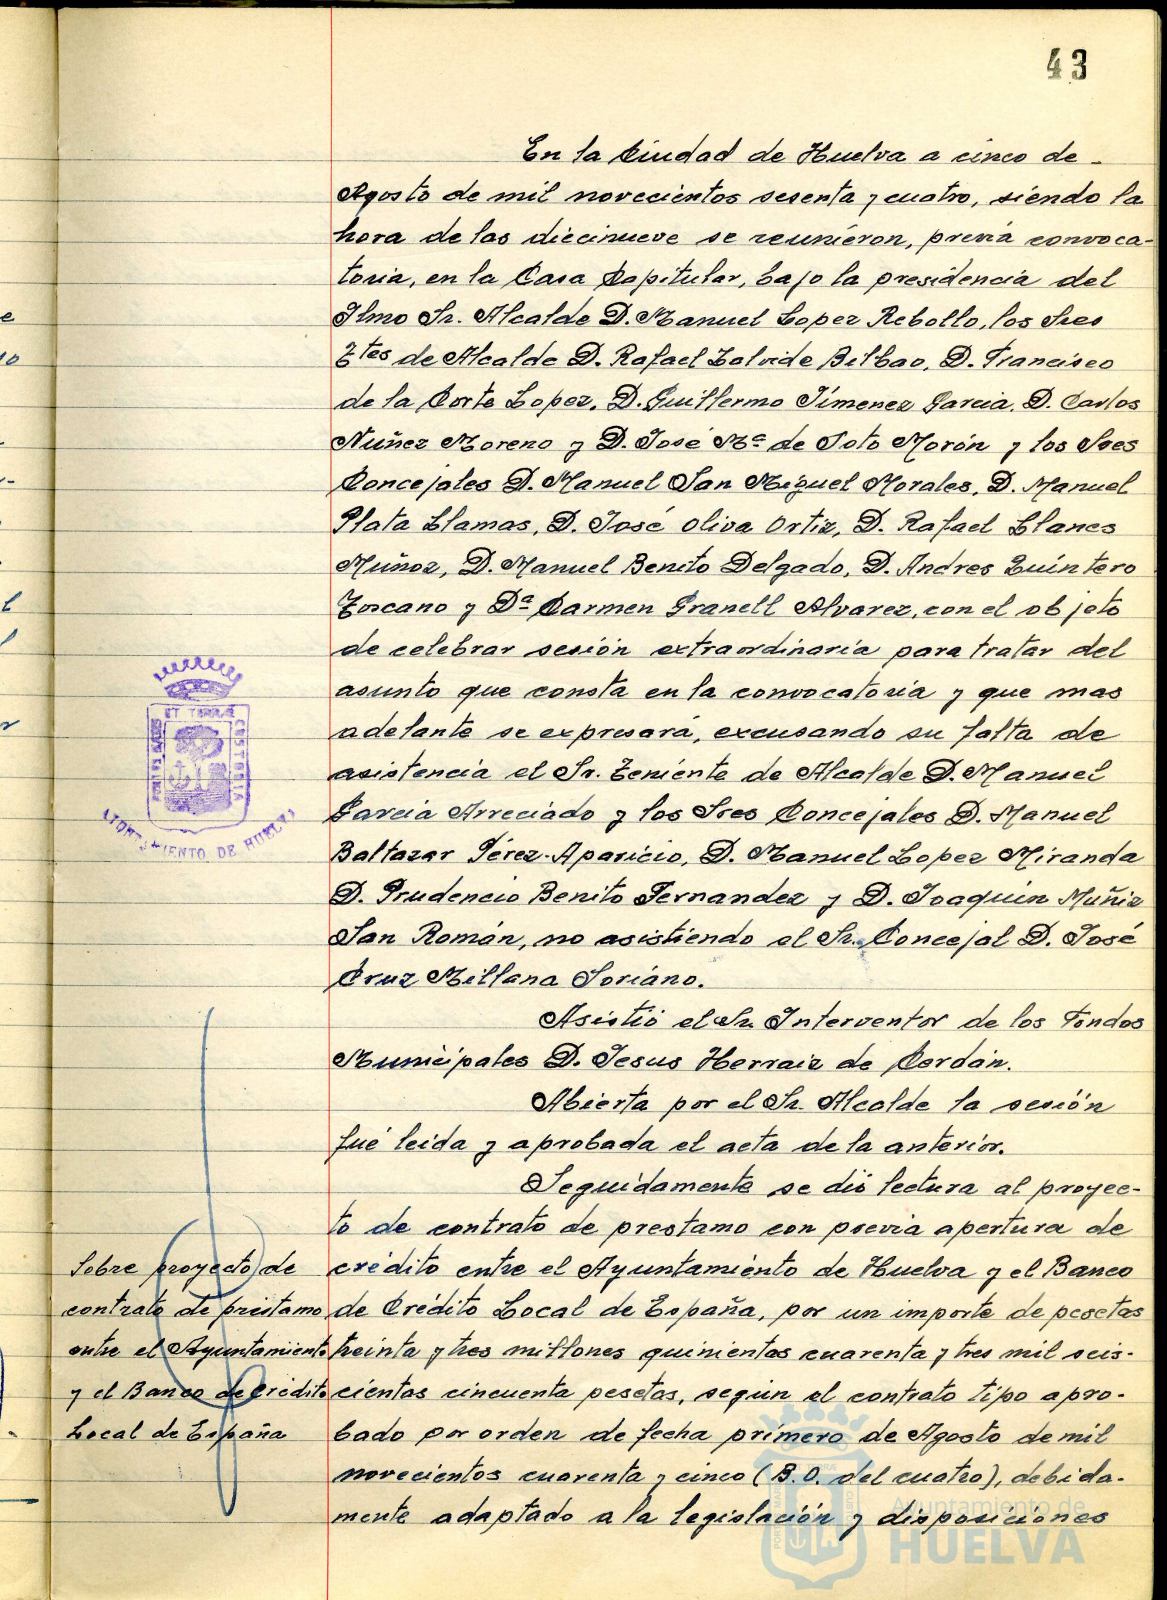 43
En la Ciudad de Huelva a cinco de -
Agosto de mil novecientos sesenta y cuatro, siendo la
hora de las diecinueve se reunieron, previa convoca-
toria, en la Casa Capitular, bajo la presidencia del
Ilmo Sr. Alcalde D. Manuel Lopez Rebollo, los Sres
Ttes de Alcalde D. Rafael Zalvide Bilbao, D. Francisco
de la Corte Lopez, D. Guillermo Jimenez Garcia, D. Carlos
Nuñez Moreno y D. José Mª de Soto Morón y los Sres
Concejales D. Manuel San Miguel Morales, D. Manuel
Plata Llamas, D. José Oliva Ortiz, D. Rafael Llanes
Muñoz, D. Manuel Benito Delgado, D. Andres Quintero
Toscano y Dª Carmen Granell Alvarez, con el objeto
de celebrar sesión extraordinaria para tratar del
asunto que consta en la convocatoria y que mas
adelante se expresará, excusando su falta de
asistencia el Sr. Teniente de Alcalde D. Manuel
Garcia Arreciado y los Sres Concejales D. Manuel
Baltazar Pérez-Aparicio, D. Manuel Lopez Miranda
D. Prudencio Benito Fernandez y D. Joaquin Muñiz
San Román, no asistiendo el Sr. Concejal D. José
Cruz Millana Soriano.
Asistió el Sr. Interventor de los Fondos
Municipales D. Jesus Herraiz de Cerdán.
Abierta por el Sr. Alcalde la sesión
fué leida y aprobada el acta de la anterior.
Seguidamente se dió lectura al proyec-
to de contrato de prestamo con previa apertura de
crédito entre el Ayuntamiento de Huelva y el Banco
de Crédito Local de España, por un importe de pesetas
treinta y tres millones quinientas cuarenta y tres mil seis-
cientas cincuenta pesetas, según el contrato tipo apro-
bado por orden de fecha primero de Agosto de mil
novecientos cuarenta y cinco (B.O. del cuatro), debida-
mente adaptado a la legislación y disposiciones
Sobre proyecto de
contrato de préstamo
entre el Ayuntamiento
y el Banco de Crédito
Local de España
ET TERRAE
CUSTODIA
AYUNTAMIENTO DE HUELVA
Ayuntamiento de
HUELVA